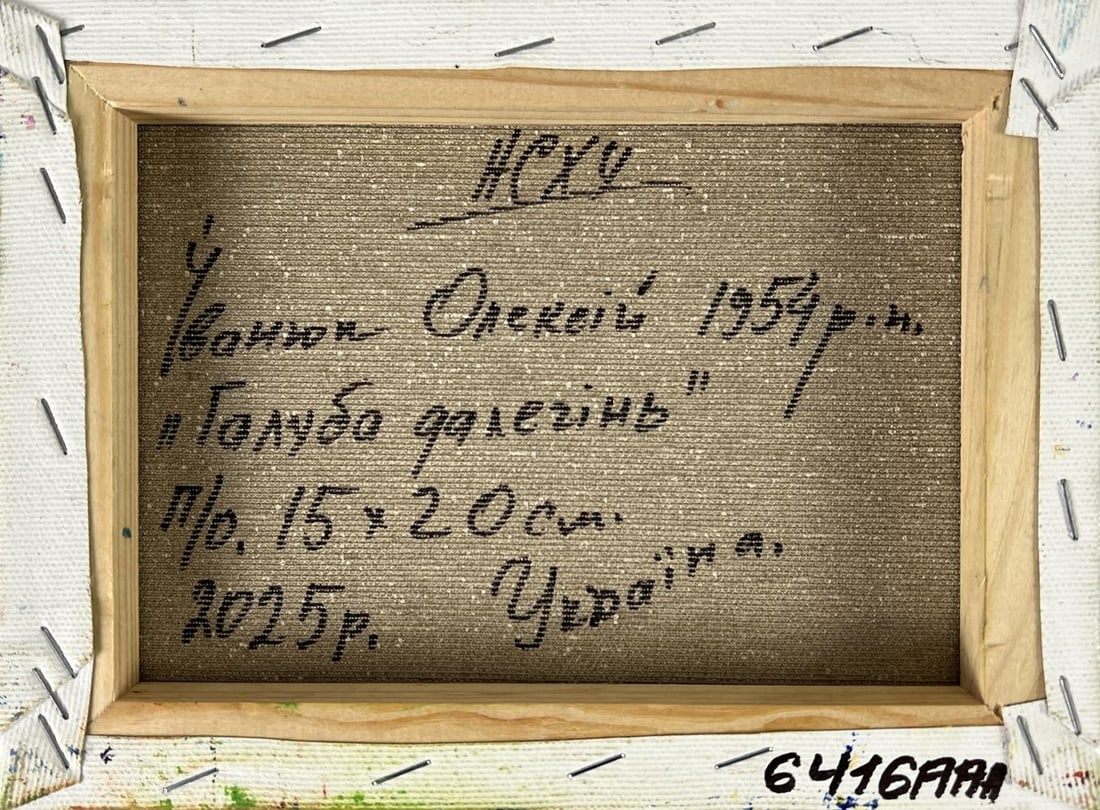 НСХУ
Іванюк Олексій 1954 р.н.
„Голуба далегінь"
п/о. 15 x 20 см.
2025р. Україна.
6416AAA